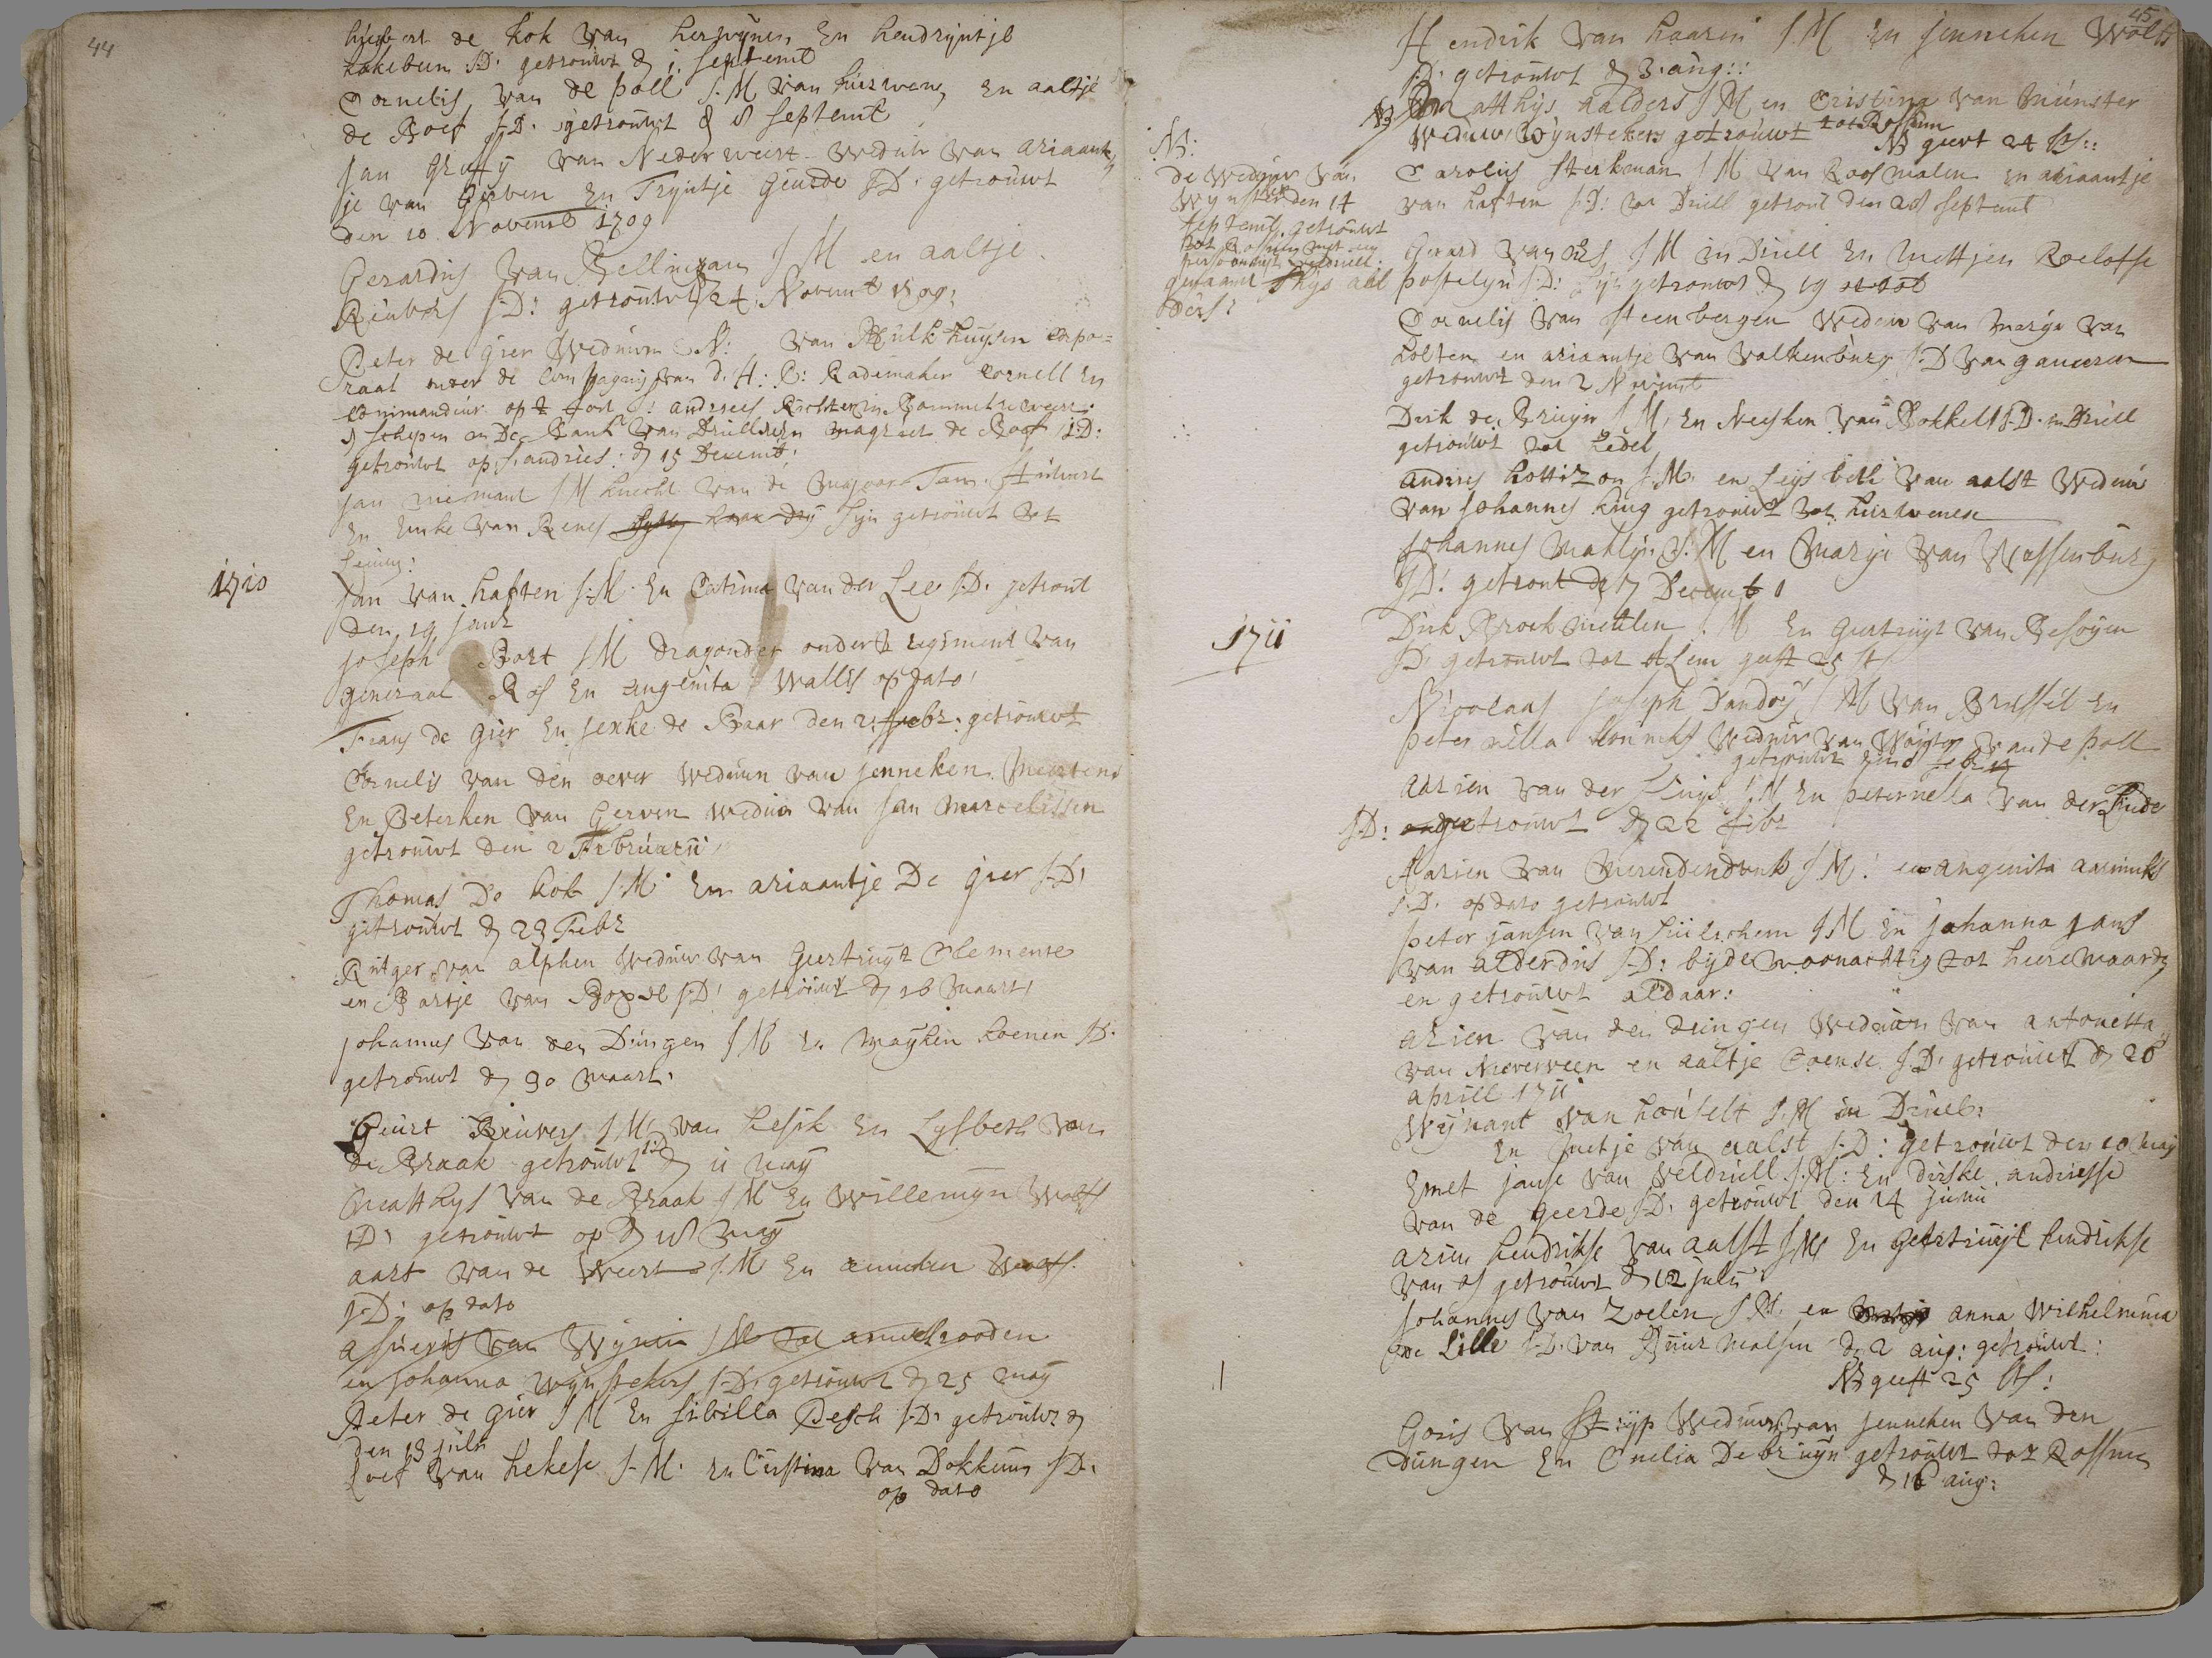 44
huybert de kok van herwynen En hendryntje
kakebeen J.D. getrouwt d 1 septemb
Cornelis van de poll J.M van hurwenen En aaltje
de Roef J.D. getrouwt d 18 septemb
Jan van Nederweert weduwr van ariaant
je van En Tryntje Geurde J.D. getrouwt
den 10 Novemb 1709
Gerardus van Bellingam J M en aaltje
Reuvers J.D: getrouwt d 24 Novemb 1709:
Peter de gier Weduwn N: van Hulkhuysen corpo=
raal onder de Compagny van d: H: C: Rademaker Cornell En
commandeur op t fort S: andries Richter in Bommelerweert
d schepen en De Bank van Driel En magriet de Roef J:D:
getrouwt op S. andries: d 15 Decemb:
Jan niemant J M knecht van de majoor
En van Renes syn getrouwt tot
1710
Jan van haften J.M. En Catrina van der Lee J.D. getrout
den 19 Janr
Joseph Bort J M dragonder onder t regiment van
generaal Ros En angenita Wallis op dato
Frans de gier En Jenke de Baar den 2 Febr: getrouwt
Cornelis van den oever weduwn van Jenneken Meertens
En Peterken van Gerven weduw van Jan Marcelissen
getrouwt den 2 Februarii
Thomas De kok J M En ariaantje De gier J.D.
getrouwt d 23 Febr
Rutger van alphen weduwr van Geertruyt Clemense
en Bartje van Boxsel J.D. getrouwt d 16 maart
Johannes van den Dungen J M En mayken koenen J.D.
getrouwt d 30 maart.
Geurt Reuvers J M van hesik En Lysbeth van
de Braak getrouwt d 11 may
Matthys van de Braak J M En Willemyn Wolfs
J.D. getrouwt op d 18 may
aart van de Weert J.M En anneken
J.D: op dato
van Wynen J M tot ammelrooden
en Johanna Wynstekers J.D. getrouwt d 25 may
Peter de gier J M En Sibilla Pesch J.D. getrouwt d
den 13 july
Roef van hekese J.M. En Cirstina van Dokkum J.D.
op dato
45
Hendrik van haaren J.M En Jenneken Wolfs
J.D. getrouwt d 3 aug::
NB Matthys aalders J M en Cristina van Munster
Weduw Wynstekers getrouwt tot Rossum
NB geert 24 st::
NB:
de weduw van
Wynsteker den 14
septemb. getrouwt
tot Rossum met een
genaamt Thys aal
ders:
Carolus Sterkman J M van Roosmalen En ariaantje
van haften J.D: tot Driell getrout den 28 septemb
Gerard van Os J M in Driell En Mettjen Roelofse
postelyn J.D: syn getrouwt d 19 octob
Cornelis van Steenbergen weduw van Marya van
holten en ariaantje van Valkenburg J.D van gameren
getrouwt den 2 Novemb
Dirk de Bruyn J M, En Neesken van Bokkelt J.D. in Driell
getrouwt tot hedel
andries hottizon J.M. en Leysbeth van aalst weduw
van Johannes king getrouwt tot hurwenen
Johannes Mahlyn J.M en Marya van Wassenburg
J.D. getrout de 7 Decemb
1711
Dirk Broekmeulen J M En Geertruyt van Besoyen
J.D. getrouwt tot aLem geeft 25 st
Nicolaas Joseph Dandoy J M van Brussel En
peternella weduw van Wouter van de poll
getrouwt den 8 febr
aarien van der J M En peternella van der Linde
J.D: getrouwt d 22 febr
Aarien van Merendendonk J M: en angenita
J.D. op dato getrouwt
peter jansen van Suilechem J M En Johanna Jans
van alderdus J.D: byde woonachtig tot heerewaarden
en getrouwt aldaar:
arien van den dungen weduwn van antonetta
van Neerveen en aaltje Coense J.D. getrouwt d 26
aprill 1711
Wynant van houselt J.M in Driel:
En metje van aalst J.D: getrouwt den 10 may
Emet janse van Veldriell J.M: En dirske andriesse
van de geerde J.D. getrouwt den 14 junii
arien hendrikse van aalst J M En geertruyt hendrikse
van os getrouwt d 12 julii
Johannes van Zoelen J M. en anna Wilhelmina
de Lille J.D. van Buurmalsen d 2 aug: getrouwt:
NB geeft 25 st:
Goris van Stryp Weduwn van Jenneken van den
dungen En Cnelia De bruyn getrouwt tot Rossum
d 16 aug: